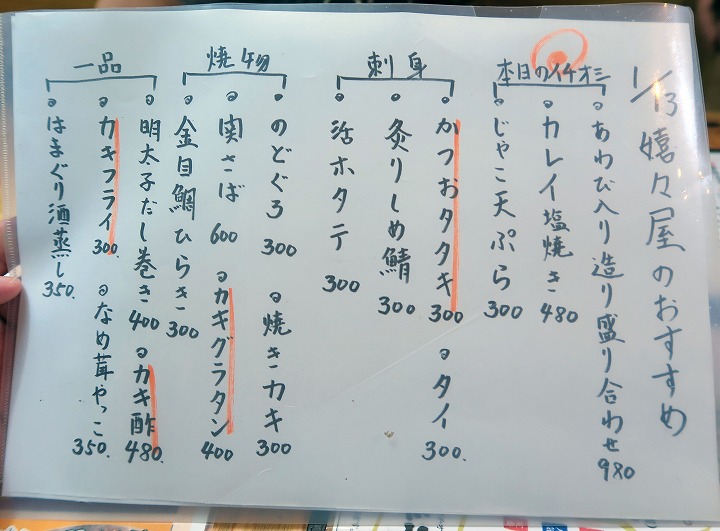 1/13 嬉々屋のおすすめ
本日のイチオシ
あわび入り造り盛り合わせ 980
カレイ塩焼き 480
じゃこ天ぷら 300
刺身
かつおタタキ 300
タイ 300.
炙りしめ鯖 300
活ホタテ 300
焼物
のどぐろ 300
焼きカキ 300
関さば 600
カキグラタン 400
金目鯛ひらき 300
一品
明太子だし巻き 400
カキ酢 480.
カキフライ 300.
なめ茸やっこ 350.
はまぐり酒蒸し 350.